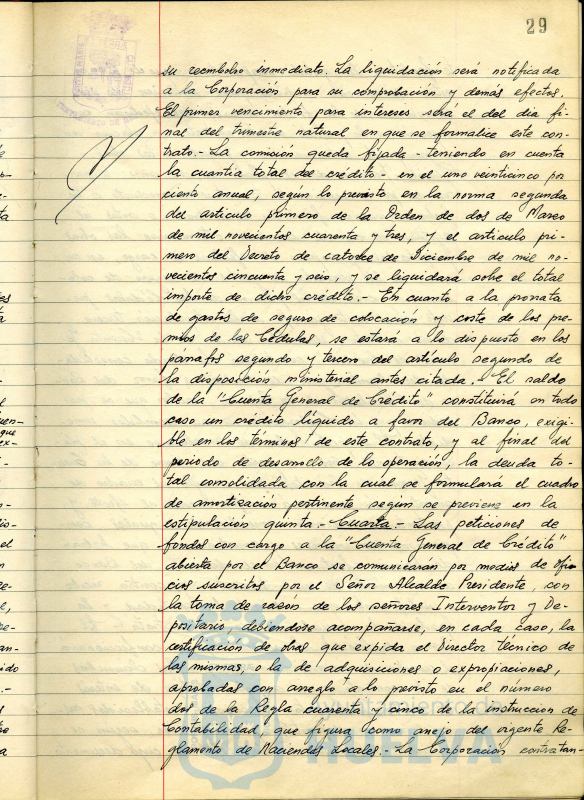 29
su reembolso inmediato. La liquidación será notificada
a la Corporación para su comprobación y demás efectos.
El primer vencimiento para intereses será el del dia fi-
nal del trimestre natural en que se formalice este con-
trato.- La comisión queda fijada - teniendo en cuenta
la cuantia total del crédito - en el uno veinticinco por
ciento anual, según lo previsto en la norma segunda
del articulo primero de la Orden de dos de Marzo
de mil novecientos cuarenta y tres, y el articulo pri-
mero del Decreto de catorce de Diciembre de mil no-
vecientos cincuenta y seis, y se liquidará sobre el total
importe de dicho crédito.- En cuanto a la prorrata
de gastos de seguro de colocación y coste de los pre-
mios de las Cédulas, se estará a lo dispuesto en los
parrafos segundo y tercero del articulo segundo de
la disposición ministerial antes citada.- El saldo
de la "Cuenta General de Crédito" constituirá en todo
caso un crédito líquido a favor del Banco, exigi-
ble en los términos de este contrato, y al final del
periodo de desarrollo de la operación, la deuda to-
tal consolidada con la cual se formulará el cuadro
de amortización pertinente segun se previene en la
estipulación quinta.- Cuarta.- Las peticiones de
fondos con cargo a la "Cuenta General de Crédito"
abierta por el Banco se comunicarán por medios de ofi-
cios suscritos por el Señor Alcalde Presidente, con
la toma de razón de los señores Interventor y De-
positario, debiendose acompañarse, en cada caso, la
certificación de obras que expida el Director técnico de
las mismas, o la de adquisiciones o expropiaciones,
aprobadas con arreglo a lo previsto en el número
dos de la Regla cuarenta y cinco de la instruccion de
Contabilidad, que figura como anejo del vigente Re-
glamento de Haciendas Locales.- La Corporación contratan-
HUELVA